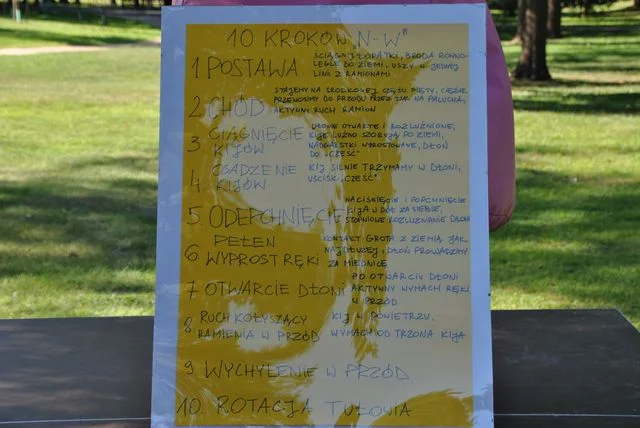 10 KROKÓW „N-W"
1 POSTAWA
ŚCIĄGNIJ ŁOPATKI, BRODA RÓWNO-
LEGLE DO ZIEMI, USZY W JEDNEJ
LINII Z RAMIONAMI
2. CHÓD
STAJEMY NA ŚRODKOWEJ CZĘŚCI PIĘTY, CIĘŻAR
PRZENOSIMY DO PRZODU PRZEZ ŁUK NA PALUCHA,
AKTYWNY RUCH RAMION
3. CIĄGNIĘCIE
KIJÓW
DŁONIE OTWARTE I ROZLUŹNIONE,
KIJE LUŹNO SZORUJĄ PO ZIEMI,
NADGARSTKI WYPROSTOWANE, DŁOŃ
DO „CZEŚĆ"
4. OSADZENIE
KIJÓW
KIJ SILNIE TRZYMAMY W DŁONI,
UŚCISK „CZEŚĆ"
5. ODEPCHNIĘCIE
NACIŚNIĘCIE I POPCHNIĘCIE
KIJA W DÓŁ ZA SIEBIE,
STOPNIOWE ROZLUŹNIANIE DŁONI
6. PEŁEN
WYPROST RĘKI
KONTAKT GROTA Z ZIEMIĄ JAK
NAJDŁUŻEJ, DŁOŃ PROWADZIMY
ZA MIEDNICĘ
7 OTWARCIE DŁONI
PO OTWARCIU DŁONI
AKTYWNY WYMACH RĘKI
W PRZÓD
8. RUCH KOŁYSZĄCY
RAMIENIA W PRZÓD
KIJ W POWIETRZU.
WYMACH OD TRZONA KIJA
9. WYCHYLENIE W PRZÓD
10. ROTACJA TUŁOWIA